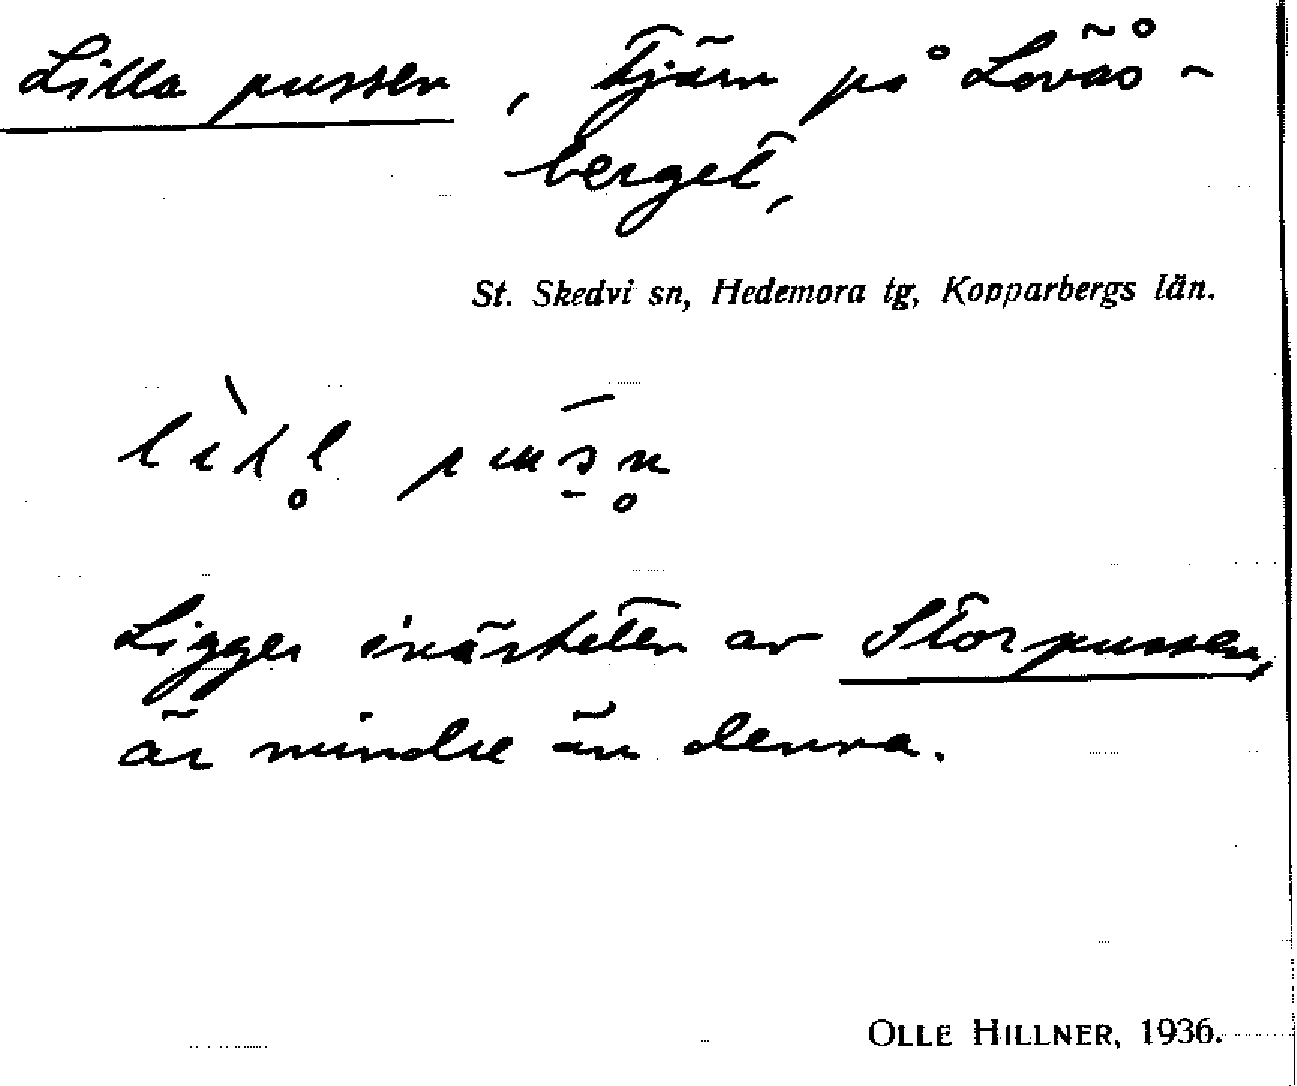 Lilla pussen, tjärn på Lovås-
berget,
St. Skedvi sn, Hedemora tg, Kopparbergs län.
Ligger i närheten av Storpussen,
är mindre än denna.
OLLE HILLNER, 1936.